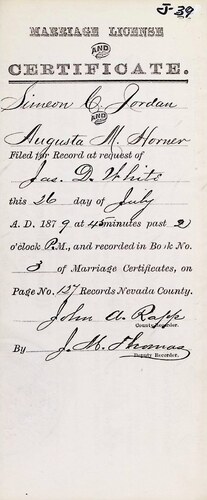 J-39
MARRIAGE LICENSE
AND
CERTIFICATE.
Simeon C. Jordan
AND
Augusta M. Horner
Filed for Record at request of
Jas. D. White
this 26 day of July
A. D. 1879 at 45 minutes past 2
o'clock P.M., and recorded in Book No.
3 of Marriage Certificates, on
Page No. 137 Records Nevada County.
John A. Rapp
County Recorder.
By J. M. Thomas
Deputy Recorder.